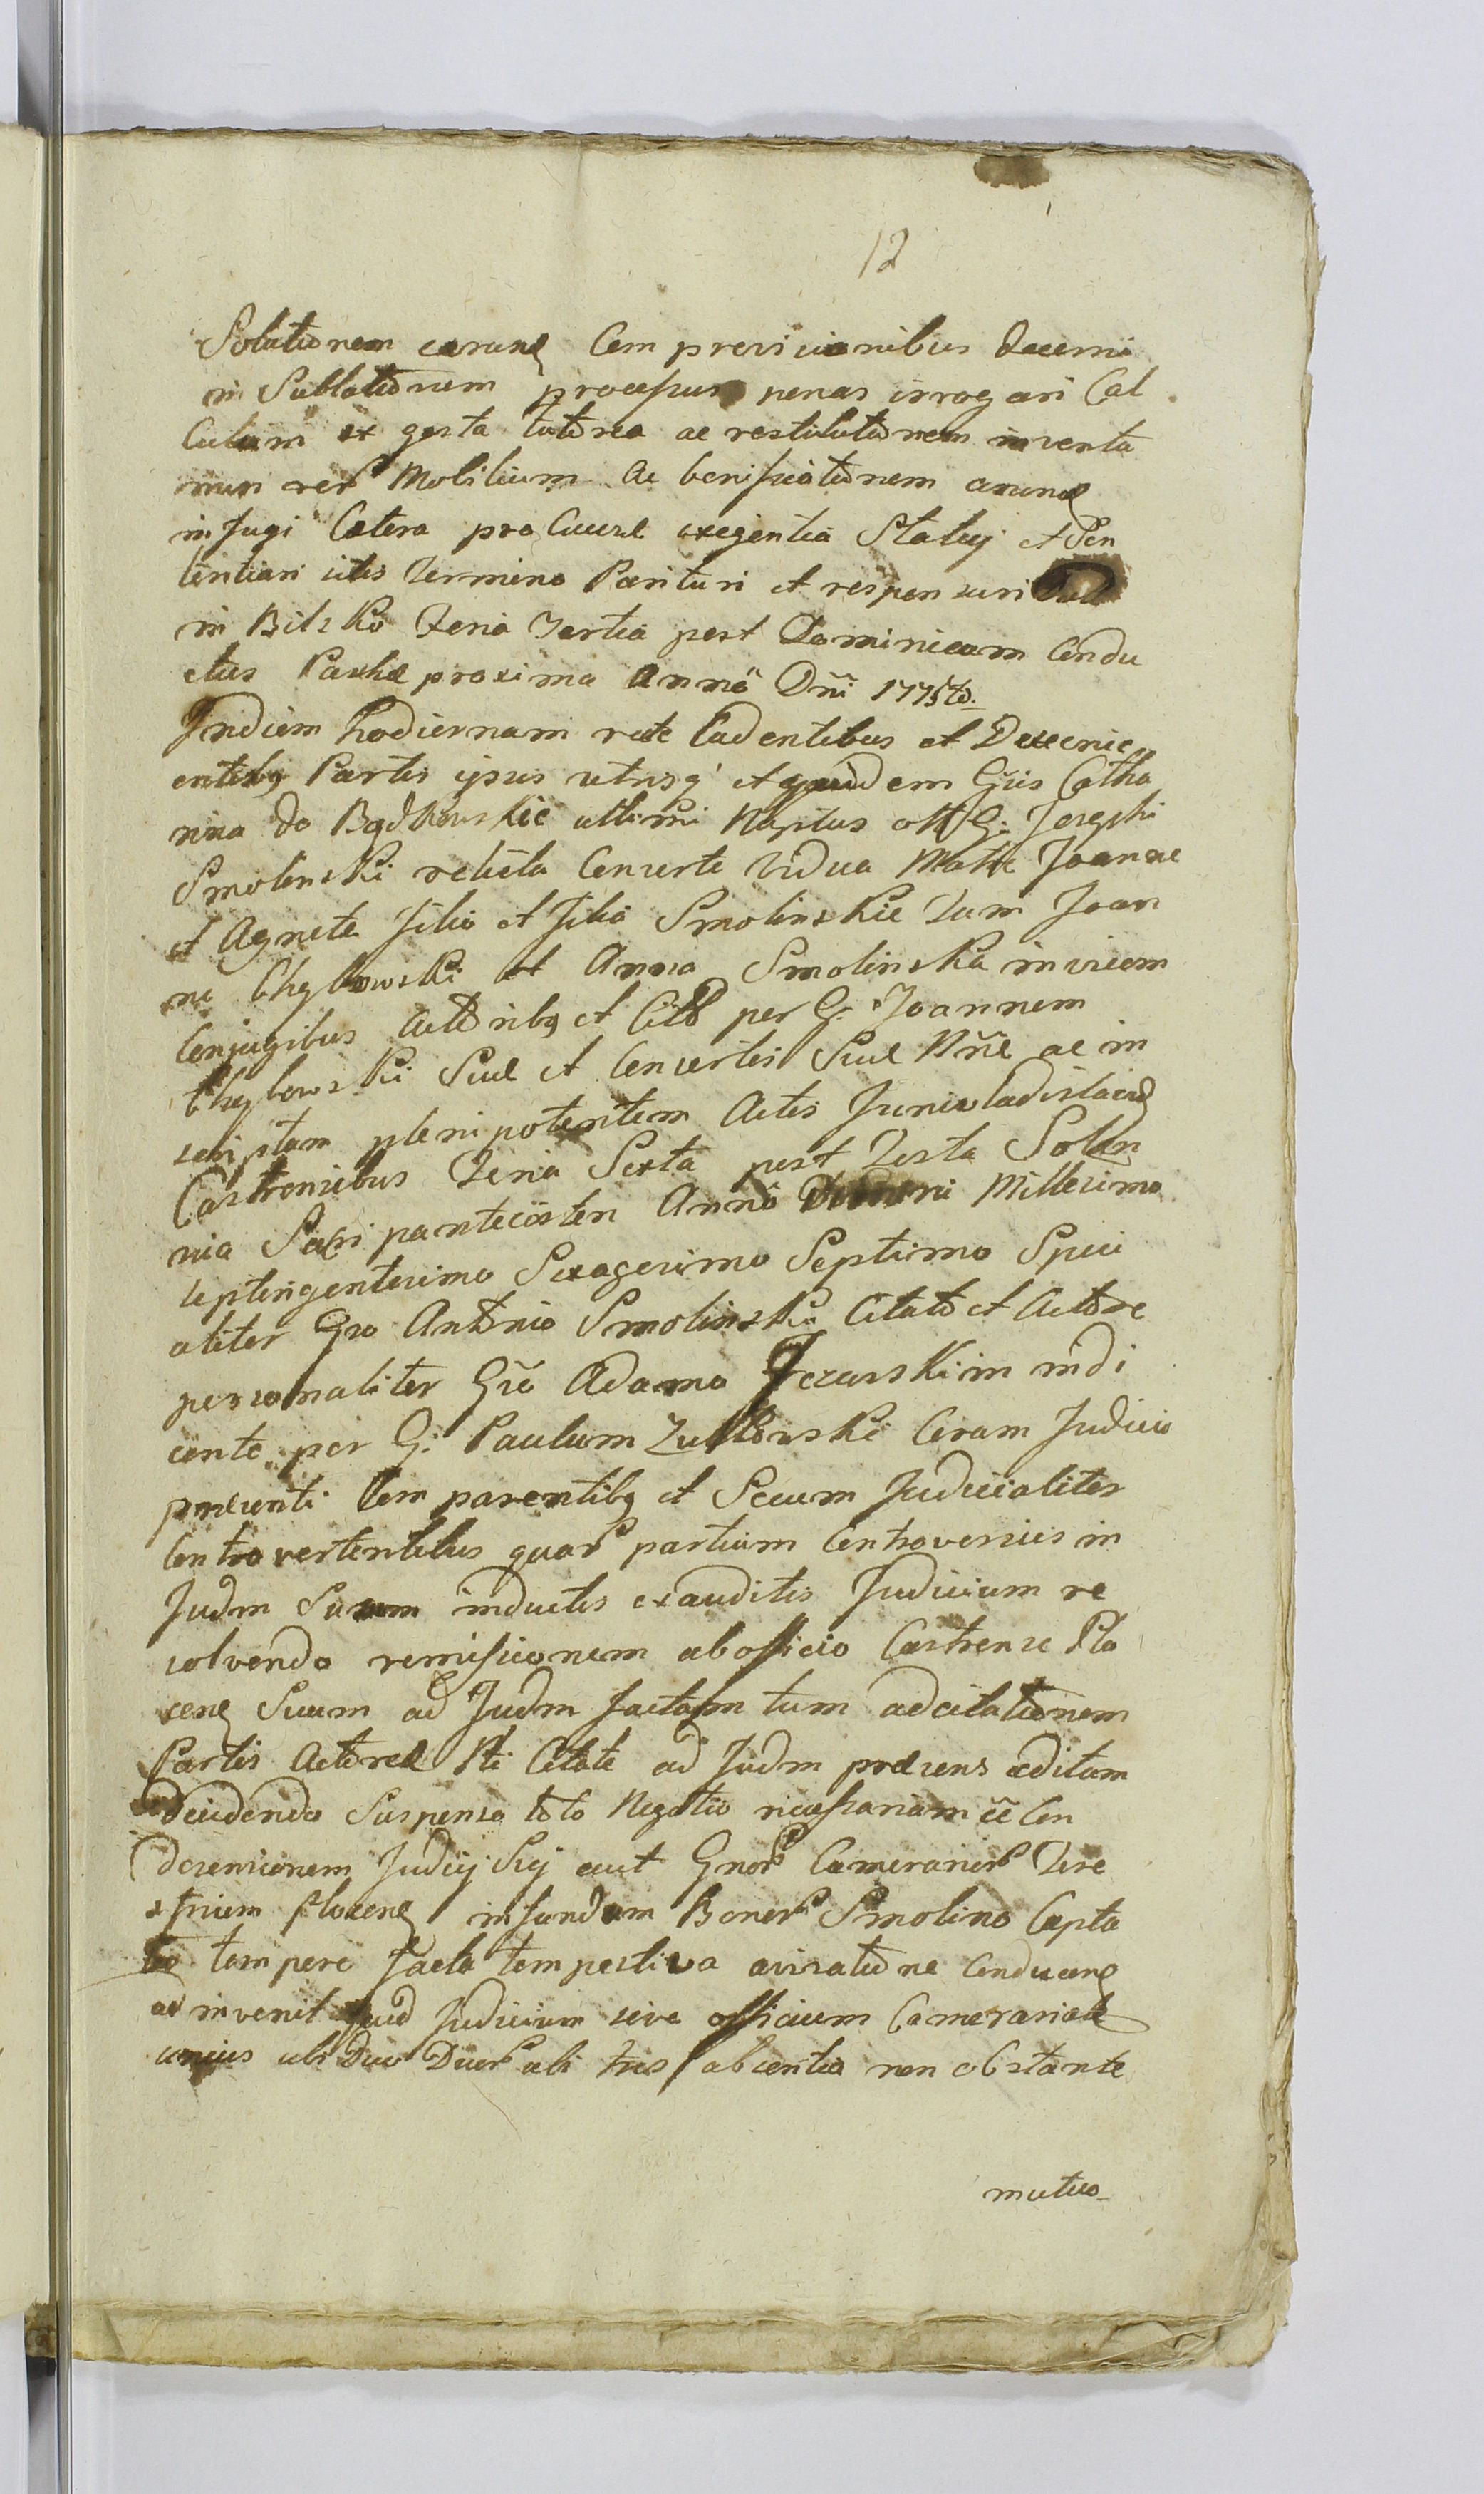 12
Solutionem earunq Com provisionibus decerni
in Sublationem processus penas irrogari Cal
Culum ex gesta tutorea ac restitutionem inventa
mun rer Mobilium ac benificationem arunq
infugi Cetera pro Causæ exigentia Statuj et Sen
tentiari citis termino Parituri et responsuri
in Bilsko Feria Tertia post Dominicam Condu
ctus Paschæ proxima Anno Dñi 1775to
Indiem hodiernam recte Cadentibus et Deveni
entibq Partis ipsius utrisq et quidem Gñis Catha
rina de Bądkowskie ultimi Nuptus olt G: Josephi
Smolenski relicta Consorte vidua Matre Joanne
et Agnete filio et filia Smolinskie tum Joan
ne Chylowski et Anna Smolinska invicem
Conjugibus Actoribq et Citt per G: Joannem
Chylowski Suæ et Consortis Suæ Nñe ac in
scriptam plenipotentem Actis Juniwladislaviæ
Castrensibus Feria Sexta post Festa Solen
nia Sacri pantecosten Anno Domini Millesimo
septingentesimo Sexagesimo Septimo Speci
aliter Gro Antonio Smolinski Citato et Actore
personaliter Gro Adamo Jezewski in indi
cente per G: Paulum Zuttowski Coram Judicio
præsenti Com parentibq et Secum Judicialiter
Controvertentibus quar partium Controversiis in
Judm Suum inductis exauditis Judicium re
solvendo remissionem ab officio Castrense Plo
cenq Suum ad Judm factam tum ad citationem
Partis Actoreæ Pti Citate ad Judm præsens æditam
decidendo Suspenso toto Negotio necessariam eē Con
descensionem Judicij Sij aut Gnor Camerarior Tere
strium plocenq in fundum Bonor Smolino Capta
to tempore facta tempestiva avisatione Conducenq
ad invenit quod Judicium sive officium Camerariale
unius ubi Duo Duor ubi tres absentia non obstante
mutuo